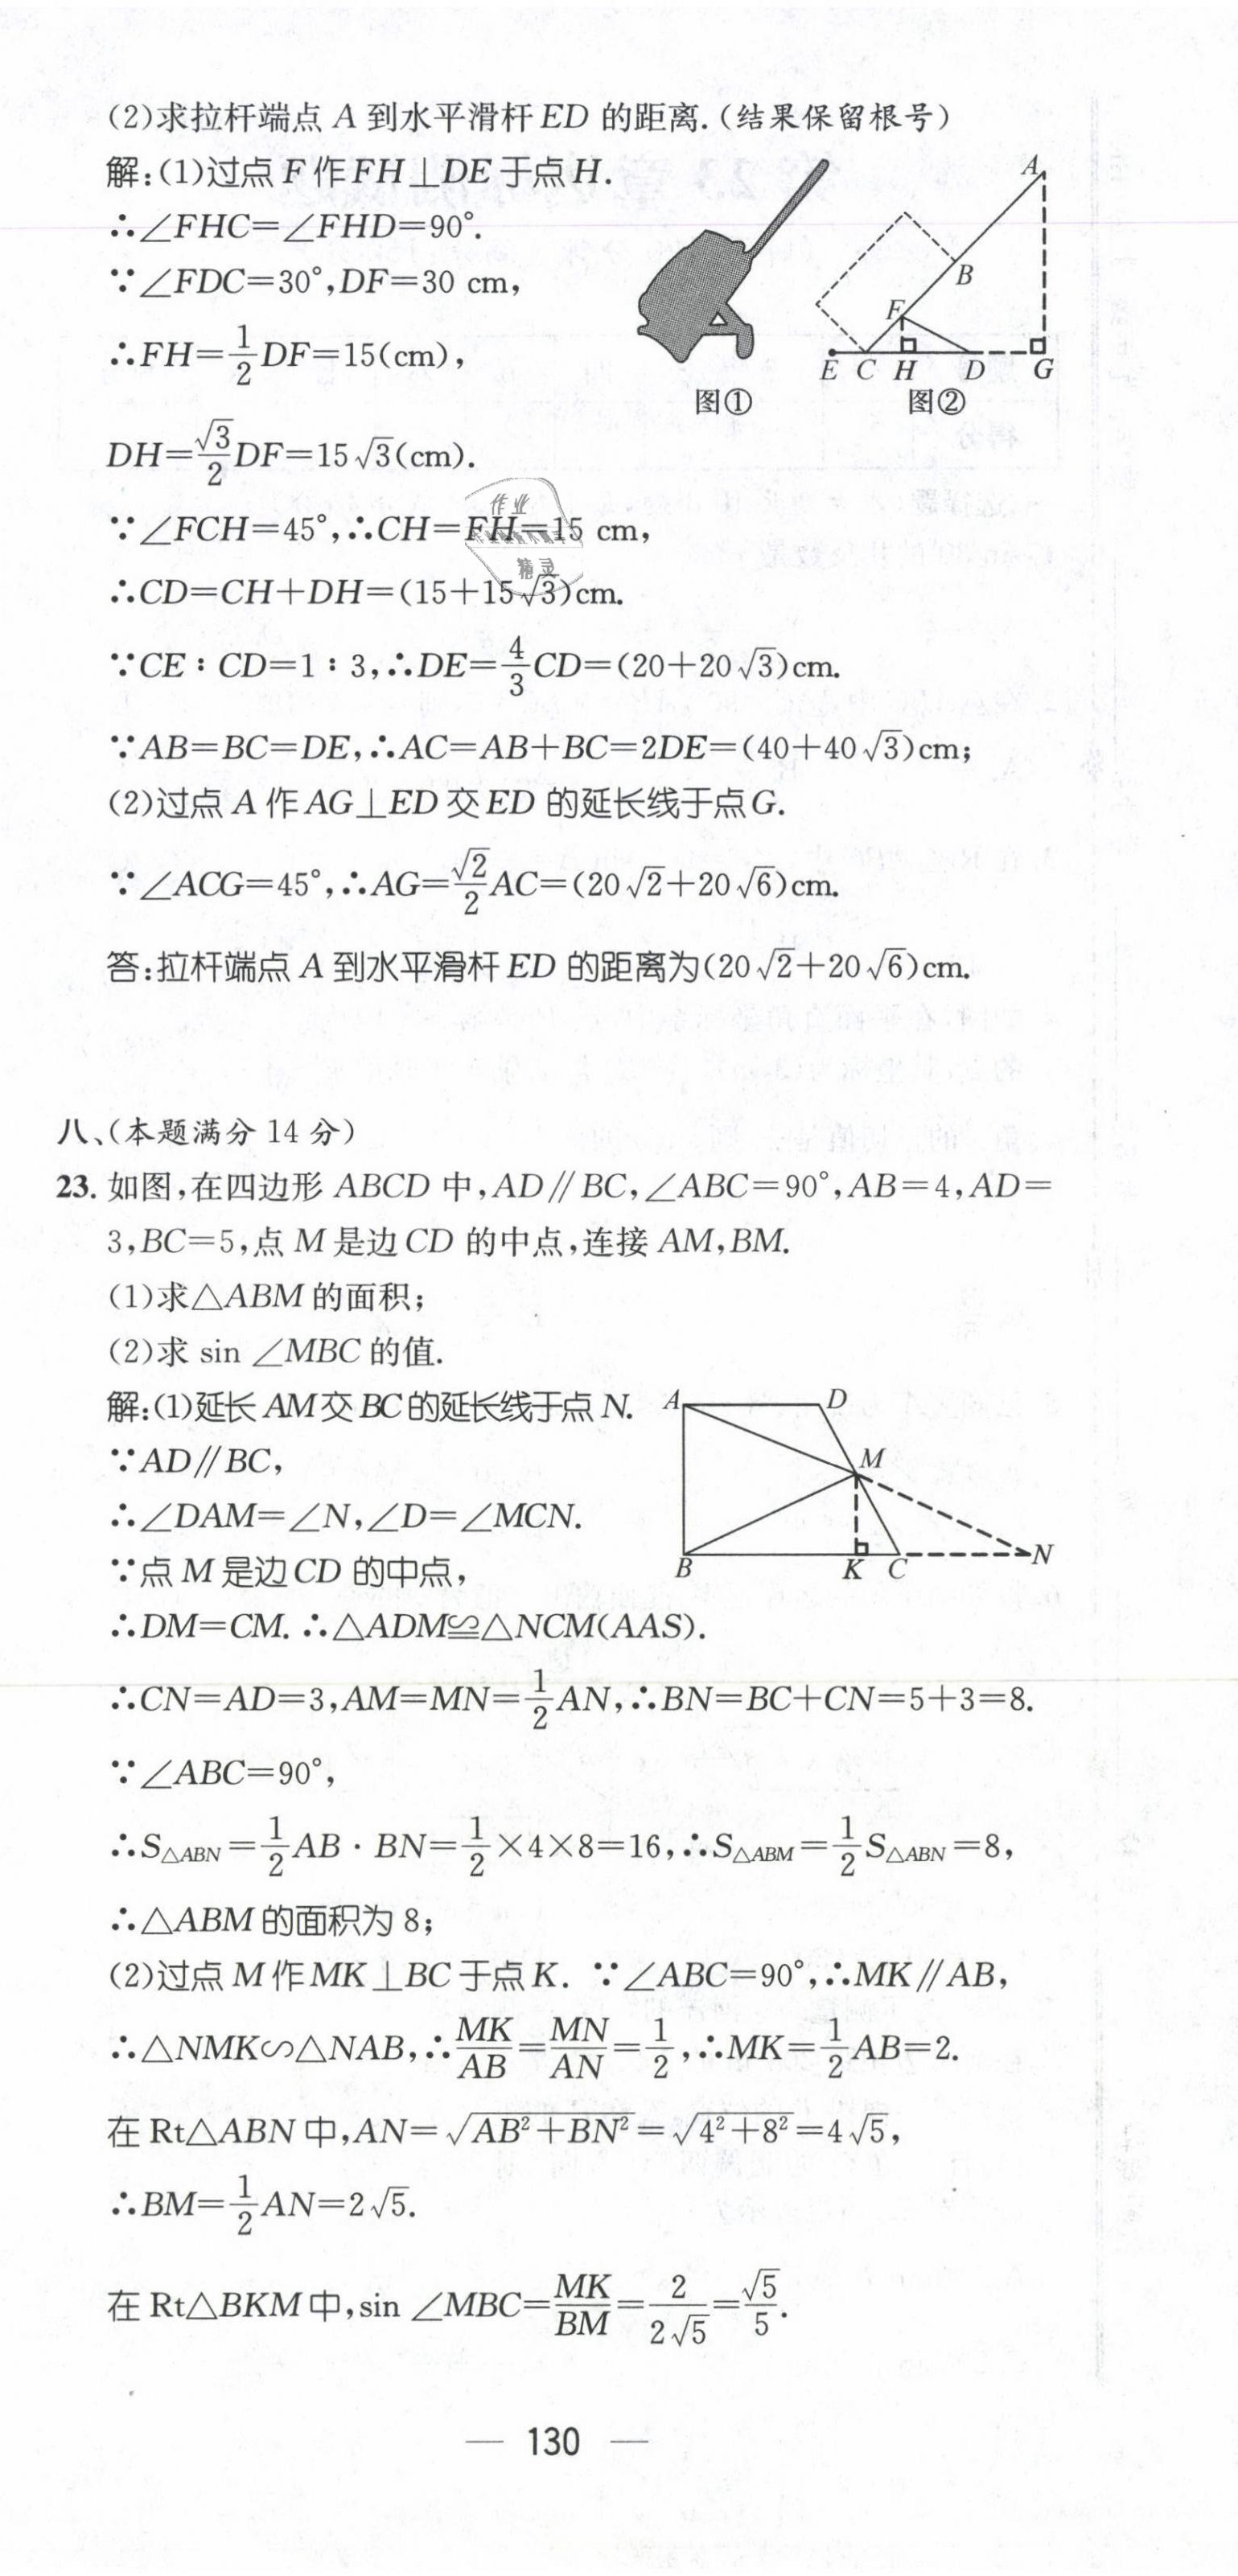 (2)求拉杆端点 A 到水平滑杆 ED 的距离.(结果保留根号)
解:(1)过点 F 作 FH⊥DE 于点 H.
∴∠FHC=∠FHD=90°.
∵∠FDC=30°,DF=30 cm,
∴FH=1/2DF=15(cm),
DH=√3/2DF=15√3(cm).
∵∠FCH=45°,∴CH=FH=15 cm,
∴CD=CH+DH=(15+15√3)cm.
∵CE∶CD=1∶3,∴DE=4/3CD=(20+20√3)cm.
∵AB=BC=DE,∴AC=AB+BC=2DE=(40+40√3)cm;
(2)过点 A 作 AG⊥ED 交 ED 的延长线于点 G.
∵∠ACG=45°,∴AG=√2/2AC=(20√2+20√6)cm.
答:拉杆端点 A 到水平滑杆 ED 的距离为(20√2+20√6)cm.
A
B
F
E C H D G
图① 图②
作业
精灵
八、(本题满分 14 分)
23. 如图,在四边形 ABCD 中,AD∥BC,∠ABC=90°,AB=4,AD=
3,BC=5,点 M 是边 CD 的中点,连接 AM,BM.
(1)求△ABM 的面积;
(2)求 sin ∠MBC 的值.
解:(1)延长 AM 交 BC 的延长线于点 N.
∵AD∥BC,
∴∠DAM=∠N,∠D=∠MCN.
∵点 M 是边 CD 的中点,
∴DM=CM. ∴△ADM≌△NCM(AAS).
A D
M
B K C N
∴CN=AD=3,AM=MN=1/2AN,∴BN=BC+CN=5+3=8.
∵∠ABC=90°,
∴S△ABN=1/2AB·BN=1/2×4×8=16,∴S△ABM=1/2S△ABN=8,
∴△ABM 的面积为 8;
(2)过点 M 作 MK⊥BC 于点 K. ∵∠ABC=90°,∴MK∥AB,
∴△NMK∽△NAB,∴MK/AB=MN/AN=1/2,∴MK=1/2AB=2.
在 Rt△ABN 中,AN=√(AB²+BN²)=√(4²+8²)=4√5,
∴BM=1/2AN=2√5.
在 Rt△BKM 中,sin ∠MBC=MK/BM=2/(2√5)=√5/5.
— 130 —